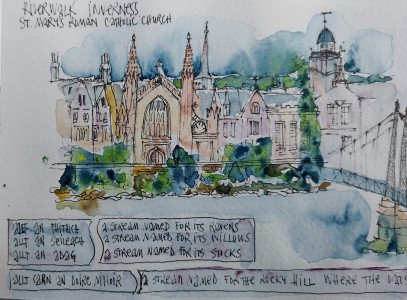 RIVERWALK INVERNESS
ST. MARY'S ROMAN CATHOLIC CHURCH
ALLT AN FHITHICH A STREAM NAMED FOR ITS RAVENS
ALLT AN SEILEACH A STREAM NAMED FOR ITS WILLOWS
ALLT AN ADAG A STREAM NAMED FOR ITS STOCKS
ALLT CARN AN A STREAM NAMED FOR THE ROCKY HILL WHERE THE